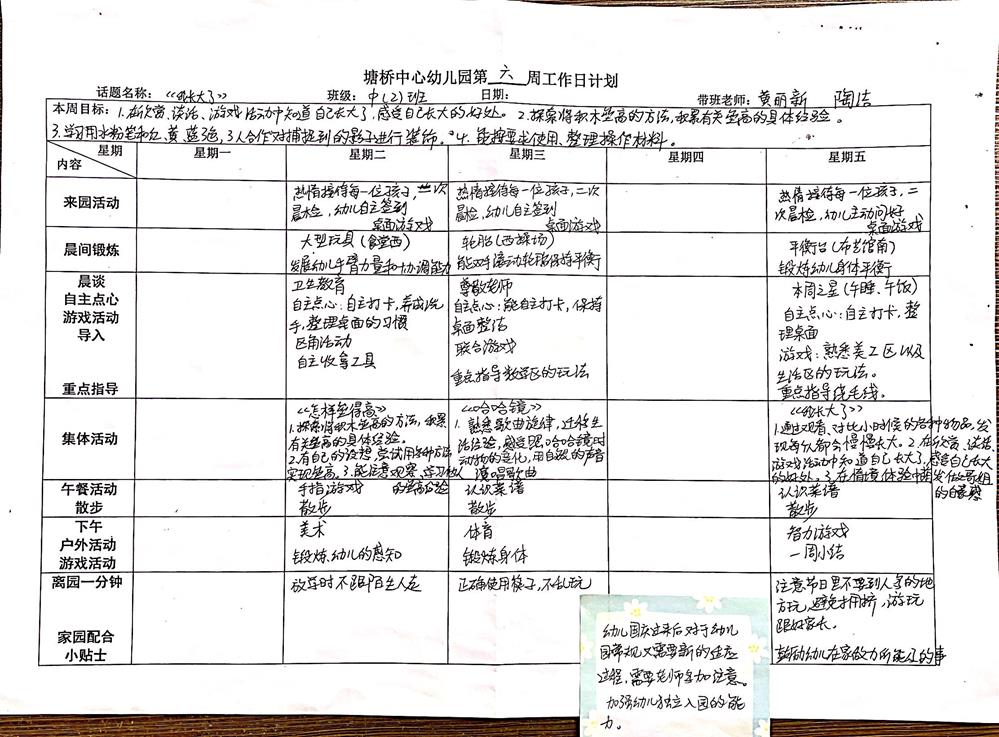 塘桥中心幼儿园第六周工作日计划
话题名称：《我长大了》 班级：中(2)班 日期： 带班老师：黄丽新 陶洁
本周目标：1.在欣赏、谈话、游戏活动中知道自己长大了，感受自己长大的好处。2.探索将积木垒高的方法，积累有关垒高的具体经验。
3.学习用水粉笔和红、黄、蓝色，3人合作对捕捉到的影子进行装饰。4.能按要求使用、整理操作材料。
星期
内容
星期一 星期二 星期三 星期四 星期五
来园活动
热情接待每一位孩子，二次
晨检，幼儿自主签到
桌面游戏
热情接待每一位孩子，二次
晨检，幼儿自主签到
桌面游戏
热情接待每一位孩子，二
次晨检，幼儿主动问好
桌面游戏
晨间锻炼
大型玩具(食堂西)
发展幼儿手臂力量和协调能力
轮胎(西操场)
能双手滚动轮胎保持平衡
平衡台(布艺馆南)
锻炼幼儿身体平衡
晨谈
自主点心
游戏活动
导入
重点指导
卫生教育
自主点心：自主打卡，养成洗
手，整理桌面的习惯
区角活动
自主收拿工具
尊敬老师
自主点心：能自主打卡，保持
桌面整洁
联合游戏
重点指导数学区的玩法
本周之星(午睡、午饭)
自主点心：自主打卡，整
理桌面
游戏：熟悉美工区以及
生活区的玩法。
重点指导绕毛线。
集体活动
《怎样垒得高》
1.探索将积木垒高的方法，积累
有关垒高的具体经验。
2.有自己的设想，尝试用各种方法
实现垒高。3.能注意观察、学习他人
的垒高经验
《哈哈镜》
1.熟悉歌曲旋律，迁移生
活经验，感受照哈哈镜时
动物的变化，用自己的声音
演唱歌曲
《我长大了》
1.通过观看、对比小时候的各种物品，发
现每个人都会慢慢长大。2.在欣赏、谈话、
游戏活动中知道自己长大了，感受自己长大
的好处。3.在情境体验中萌发做哥姐
的自豪感
午餐活动
散步
手指游戏
散步
认识菜谱
散步
认识菜谱
散步
下午
户外活动
游戏活动
美术
锻炼幼儿的感知
体育
锻炼身体
智力游戏
一周小结
离园一分钟
放学时不跟陌生人走
正确使用筷子，不乱玩
注意节日里不要到人多的地
方玩，避免拥挤，游玩
跟好家长。
家园配合
小贴士
鼓励幼儿在家做力所能及的事
幼儿国庆过来后对于幼儿
园常规又需要新的适应
过程，需要老师多加注意。
加强幼儿独立入园的能
力。